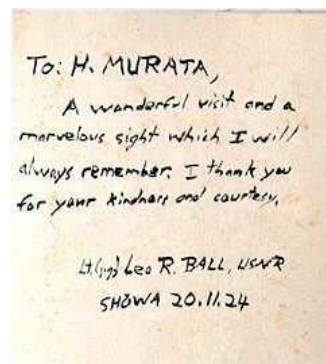 To: H. MURATA,
A wonderful visit and a
marvelous sight which I will
always remember. I thank you
for your kindness and courtesy.
Lt.(jg) Leo R. BALL, USNR
SHŌWA 20.11.24